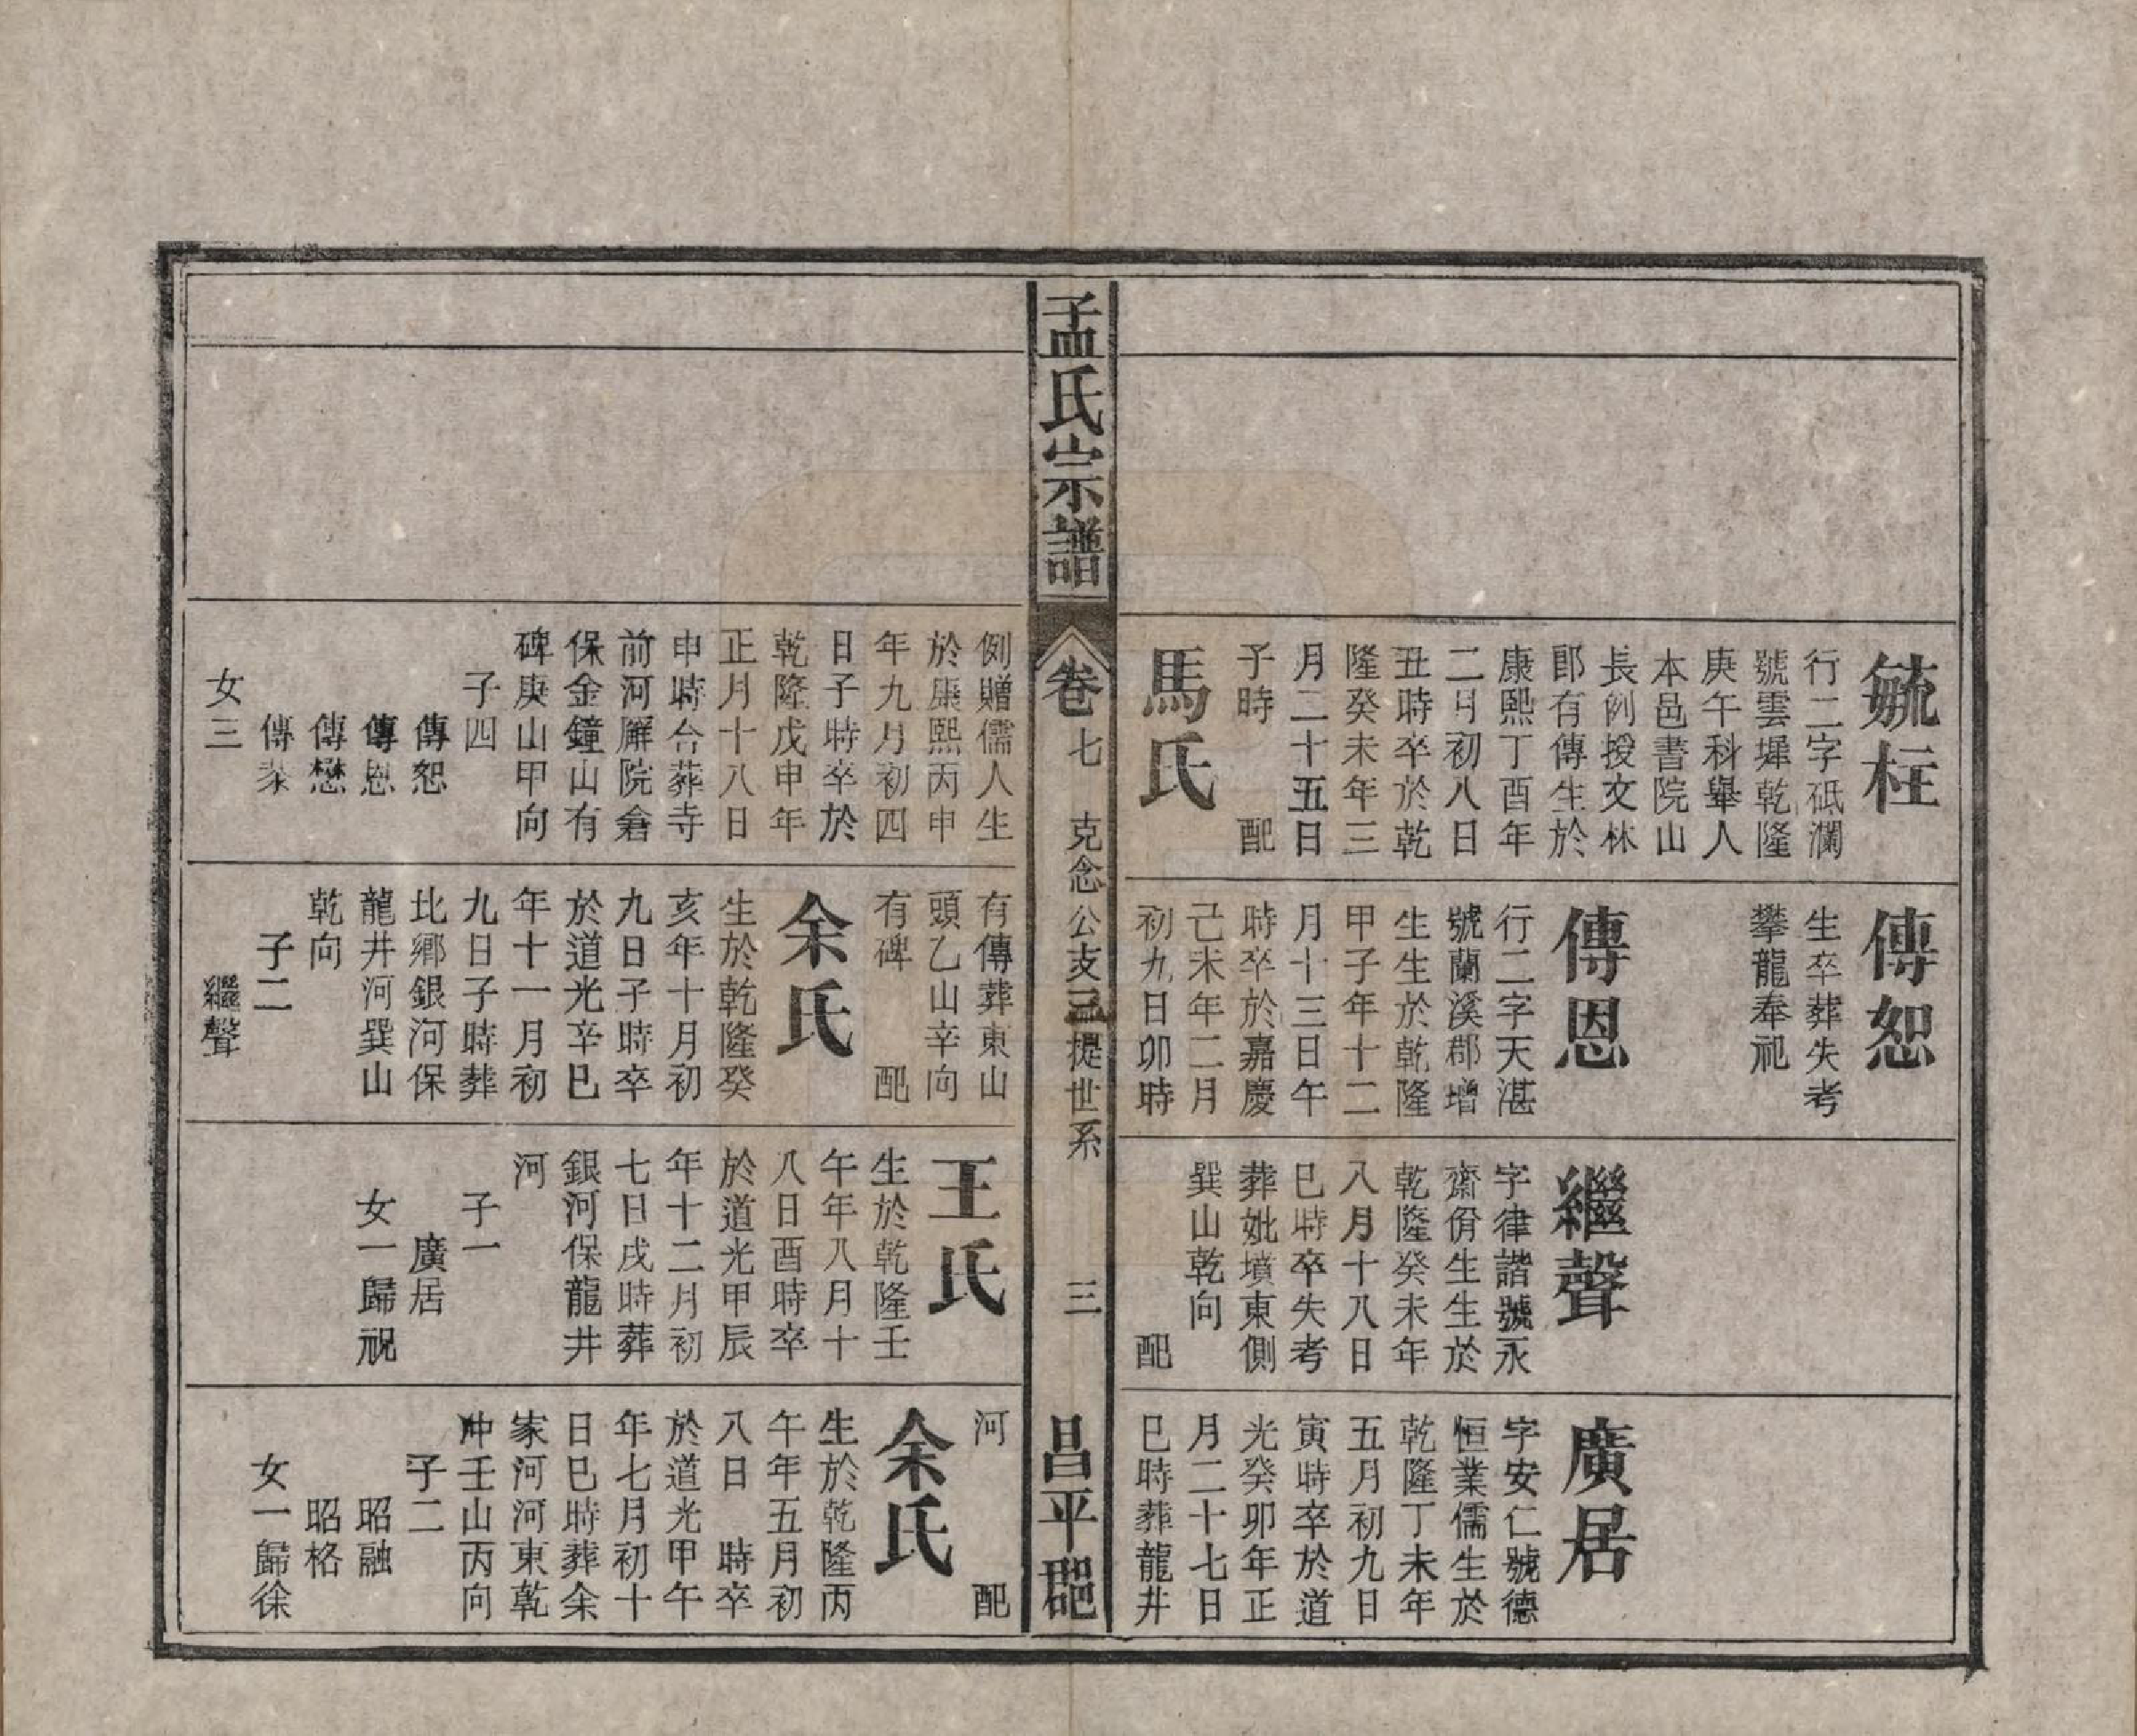 毓柱
行二字砥瀾
號雲墀乾隆
庚午科舉人
本邑書院山
長例授文林
郎有傳生於
康熙丁酉年
二月初八日
丑時卒於乾
隆癸未年三
月二十五日
子時 配
馬氏
傳恕
生卒葬失考
攀龍奉祀
傳恩
行二字天湛
號蘭溪郡增
生生於乾隆
甲子年十二
月十三日午
時卒於嘉慶
己未年二月
初九日卯時
繼聲
字律諧號永
齋佾生生於
乾隆癸未年
八月十八日
巳時卒失考
葬妣墳東側
巽山乾向
配
廣居
字安仁號德
恒業儒生於
乾隆丁未年
五月初九日
寅時卒於道
光癸卯年正
月二十七日
巳時葬龍井
孟氏宗譜
卷七 克念公支 提世系 三
昌平郡
例贈儒人生
於康熙丙申
年九月初四
日子時卒於
乾隆戊申年
正月十八日
申時合葬寺
前河廨院倉
保金鐘山有
碑庚山甲向
子四
傳恕
傳恩
傳懋
傳菜
女三
有傳葬東山
頭乙山辛向
有碑 配
余氏
生於乾隆癸
亥年十月初
九日子時卒
於道光辛巳
年十一月初
九日子時葬
比鄉銀河保
龍井河巽山
乾向
子二
繼聲
王氏
生於乾隆壬
午年八月十
八日酉時卒
於道光甲辰
年十二月初
七日戌時葬
銀河保龍井
河
子一
廣居
女一歸祝
河 配
余氏
生於乾隆丙
午年五月初
八日 時卒
於道光甲午
年七月初十
日巳時葬余
家河河東乾
冲壬山丙向
子二
昭融
昭格
女一歸徐